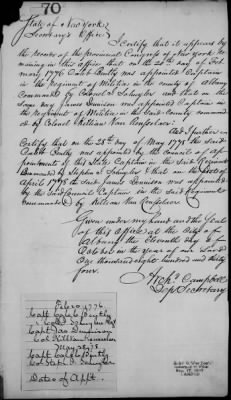 70
State of New York
Secretary's Office
I certify that it appears by
the records of the Provincial Congress of New York re
maining in this office that on the 20th day of Feb
ruary 1776 was appointed Captain
in the Regiment of Militia in the county of Albany
commanded by Colonel Schuyler and that on the
same day James Dennison was appointed Captain in
the Regiment of Militia in the said County command
ed by Colonel Killian Van Renselaer.
And I further
Certify that on the 28th day of May 1778 the said
was appointed by the Council of ap
pointment of this State Captain in the said Regiment
Commanded by Stephen J. Schuyler and that on the
April 1778 the said James Dennison was appointed
by the said Council Captain in the said Regiment
commanded by Killian Van Renselaer
Given under my hand and the Seal
of this office at the City of
Albany the Eleventh day of
October in the year of our Lord
One thousand eight hundred and thirty
four.
Archd. Campbell
Dep Secretary
Feb 20 1776
Capt
Col Schuyler
Capt Jas Dennison
Col Killian Renselaer
May 1778
Capt
Col Steph. J. Schuyler
Dates of Appt.